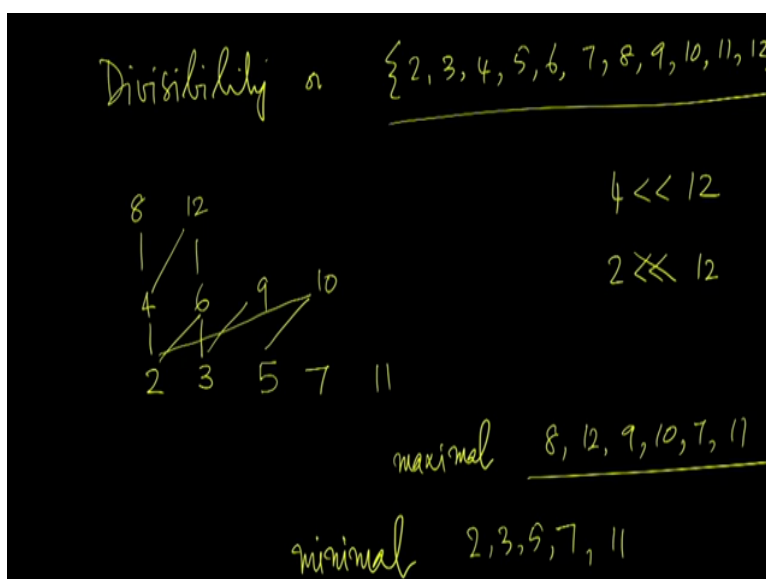 Divisibility on {2, 3, 4, 5, 6, 7, 8, 9, 10, 11, 12
4 << 12
2 << 12
8 12
4 6 9 10
2 3 5 7 11
maximal 8, 12, 9, 10, 7, 11
minimal 2, 3, 5, 7, 11